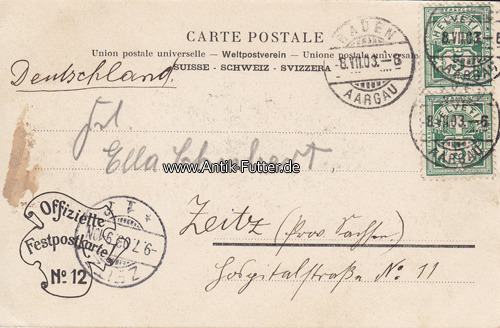 CARTE POSTALE
Union postale universelle – Weltpostverein – Unione postale universale
SUISSE - SCHWEIZ - SVIZZERA
Deutschland.
BADEN
8.VII.03.–6
AARGAU
HELVETIA
8.VII.03.–6
AARGAU
8.VII.03.–6
AARGAU
Frl.
Ella
www.Antik-Futter.de
Zeitz (Prov. Sachsen)
Hospitalstraße No. 11
Offizielle
Festpostkarte
No. 12
9.7.03